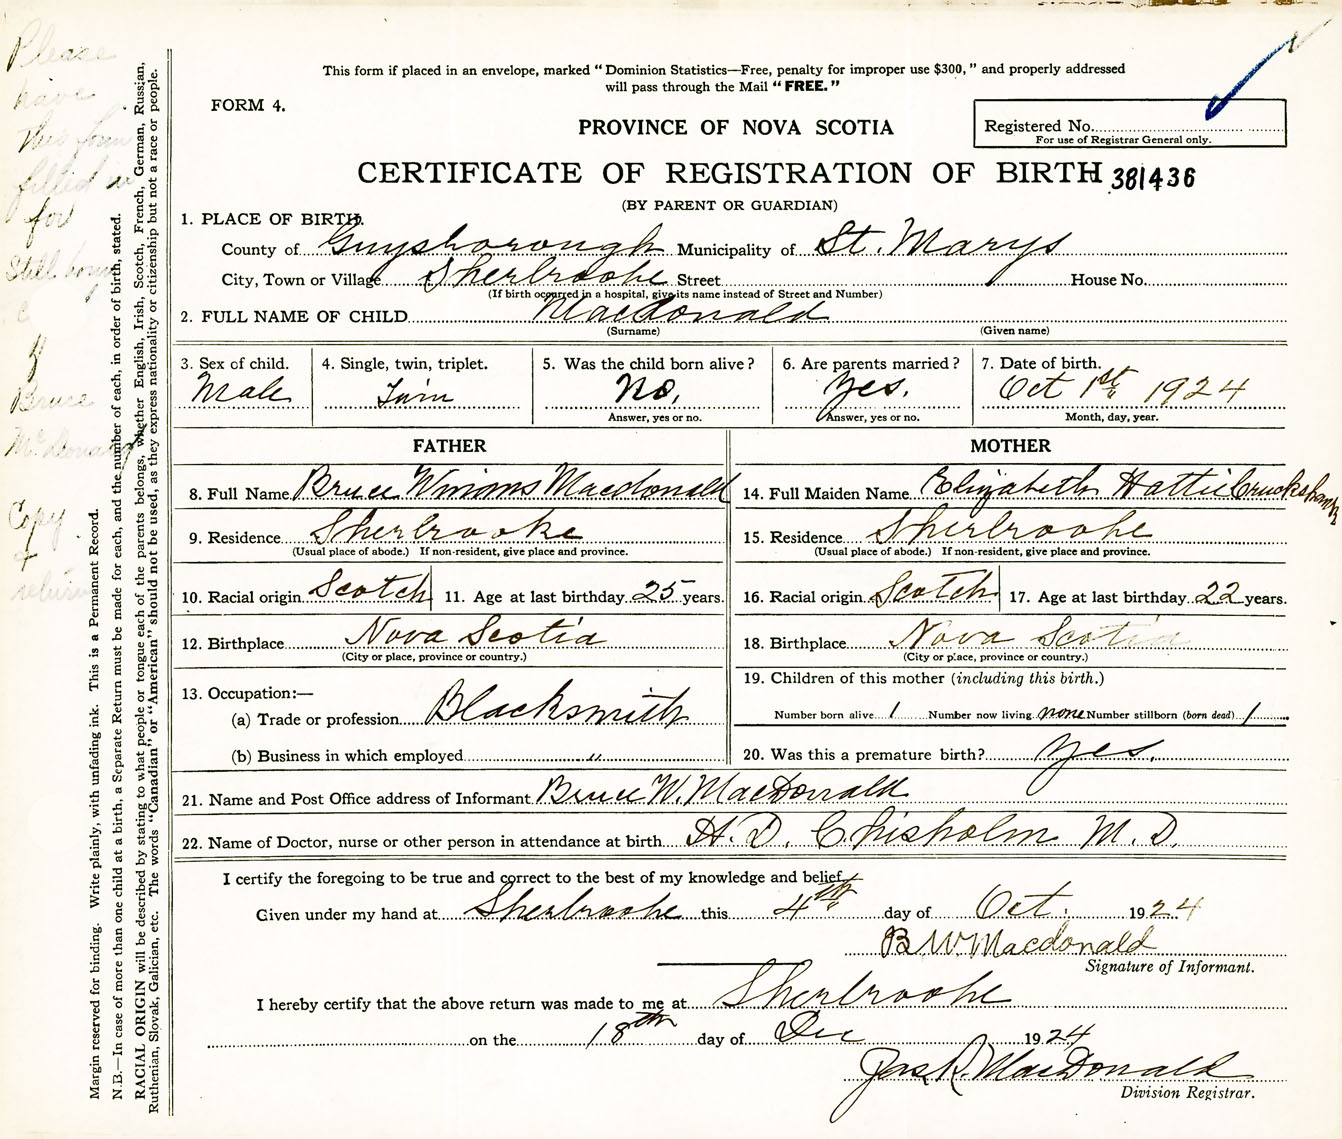 This form if placed in an envelope, marked "Dominion Statistics—Free, penalty for improper use $300," and properly addressed
will pass through the Mail "FREE."
FORM 4.
PROVINCE OF NOVA SCOTIA
Registered No.
For use of Registrar General only.
CERTIFICATE OF REGISTRATION OF BIRTH 381436
(BY PARENT OR GUARDIAN)
1. PLACE OF BIRTH.
County of Guysborough Municipality of St. Marys
City, Town or Village Sherbrooke Street House No.
(If birth occurred in a hospital, give its name instead of Street and Number)
2. FULL NAME OF CHILD Macdonald
(Surname) (Given name)
3. Sex of child. 4. Single, twin, triplet. 5. Was the child born alive? 6. Are parents married? 7. Date of birth.
Male Twin No. Yes. Oct 1st 1924
Answer, yes or no. Answer, yes or no. Month, day, year.
FATHER MOTHER
8. Full Name Bruce Macdonald 14. Full Maiden Name Elizabeth Hattie Cruckshank
9. Residence Sherbrooke 15. Residence Sherbrooke
(Usual place of abode.) If non-resident, give place and province. (Usual place of abode.) If non-resident, give place and province.
10. Racial origin Scotch 11. Age at last birthday 25 years. 16. Racial origin Scotch 17. Age at last birthday 22 years.
12. Birthplace Nova Scotia 18. Birthplace Nova Scotia
(City or place, province or country.) (City or place, province or country.)
13. Occupation:— 19. Children of this mother (including this birth.)
(a) Trade or profession Blacksmith Number born alive 1 Number now living none Number stillborn (born dead) 1
(b) Business in which employed " 20. Was this a premature birth? Yes.
21. Name and Post Office address of Informant Bruce W. MacDonald
22. Name of Doctor, nurse or other person in attendance at birth H. D. Chisholm M. D.
I certify the foregoing to be true and correct to the best of my knowledge and belief.
Given under my hand at Sherbrooke this 4th day of Oct. 1924
B W Macdonald
Signature of Informant.
I hereby certify that the above return was made to me at Sherbrooke
on the 18th day of Dec 1924
Jas R. MacDonald
Division Registrar.
Margin reserved for binding. Write plainly, with unfading ink. This is a Permanent Record.
N.B.—In case of more than one child at a birth, a Separate Return must be made for each, and the number of each, in order of birth, stated.
RACIAL ORIGIN will be described by stating to what people or tongue each of the parents belongs, whether English, Irish, Scotch, French, German, Russian,
Ruthenian, Slovak, Galician, etc. The words "Canadian" or "American" should not be used, as they express nationality or citizenship but not a race or people.
Please
have
this form
filled in
for
Still born
of
Bruce
McDonald
Copy
+
return